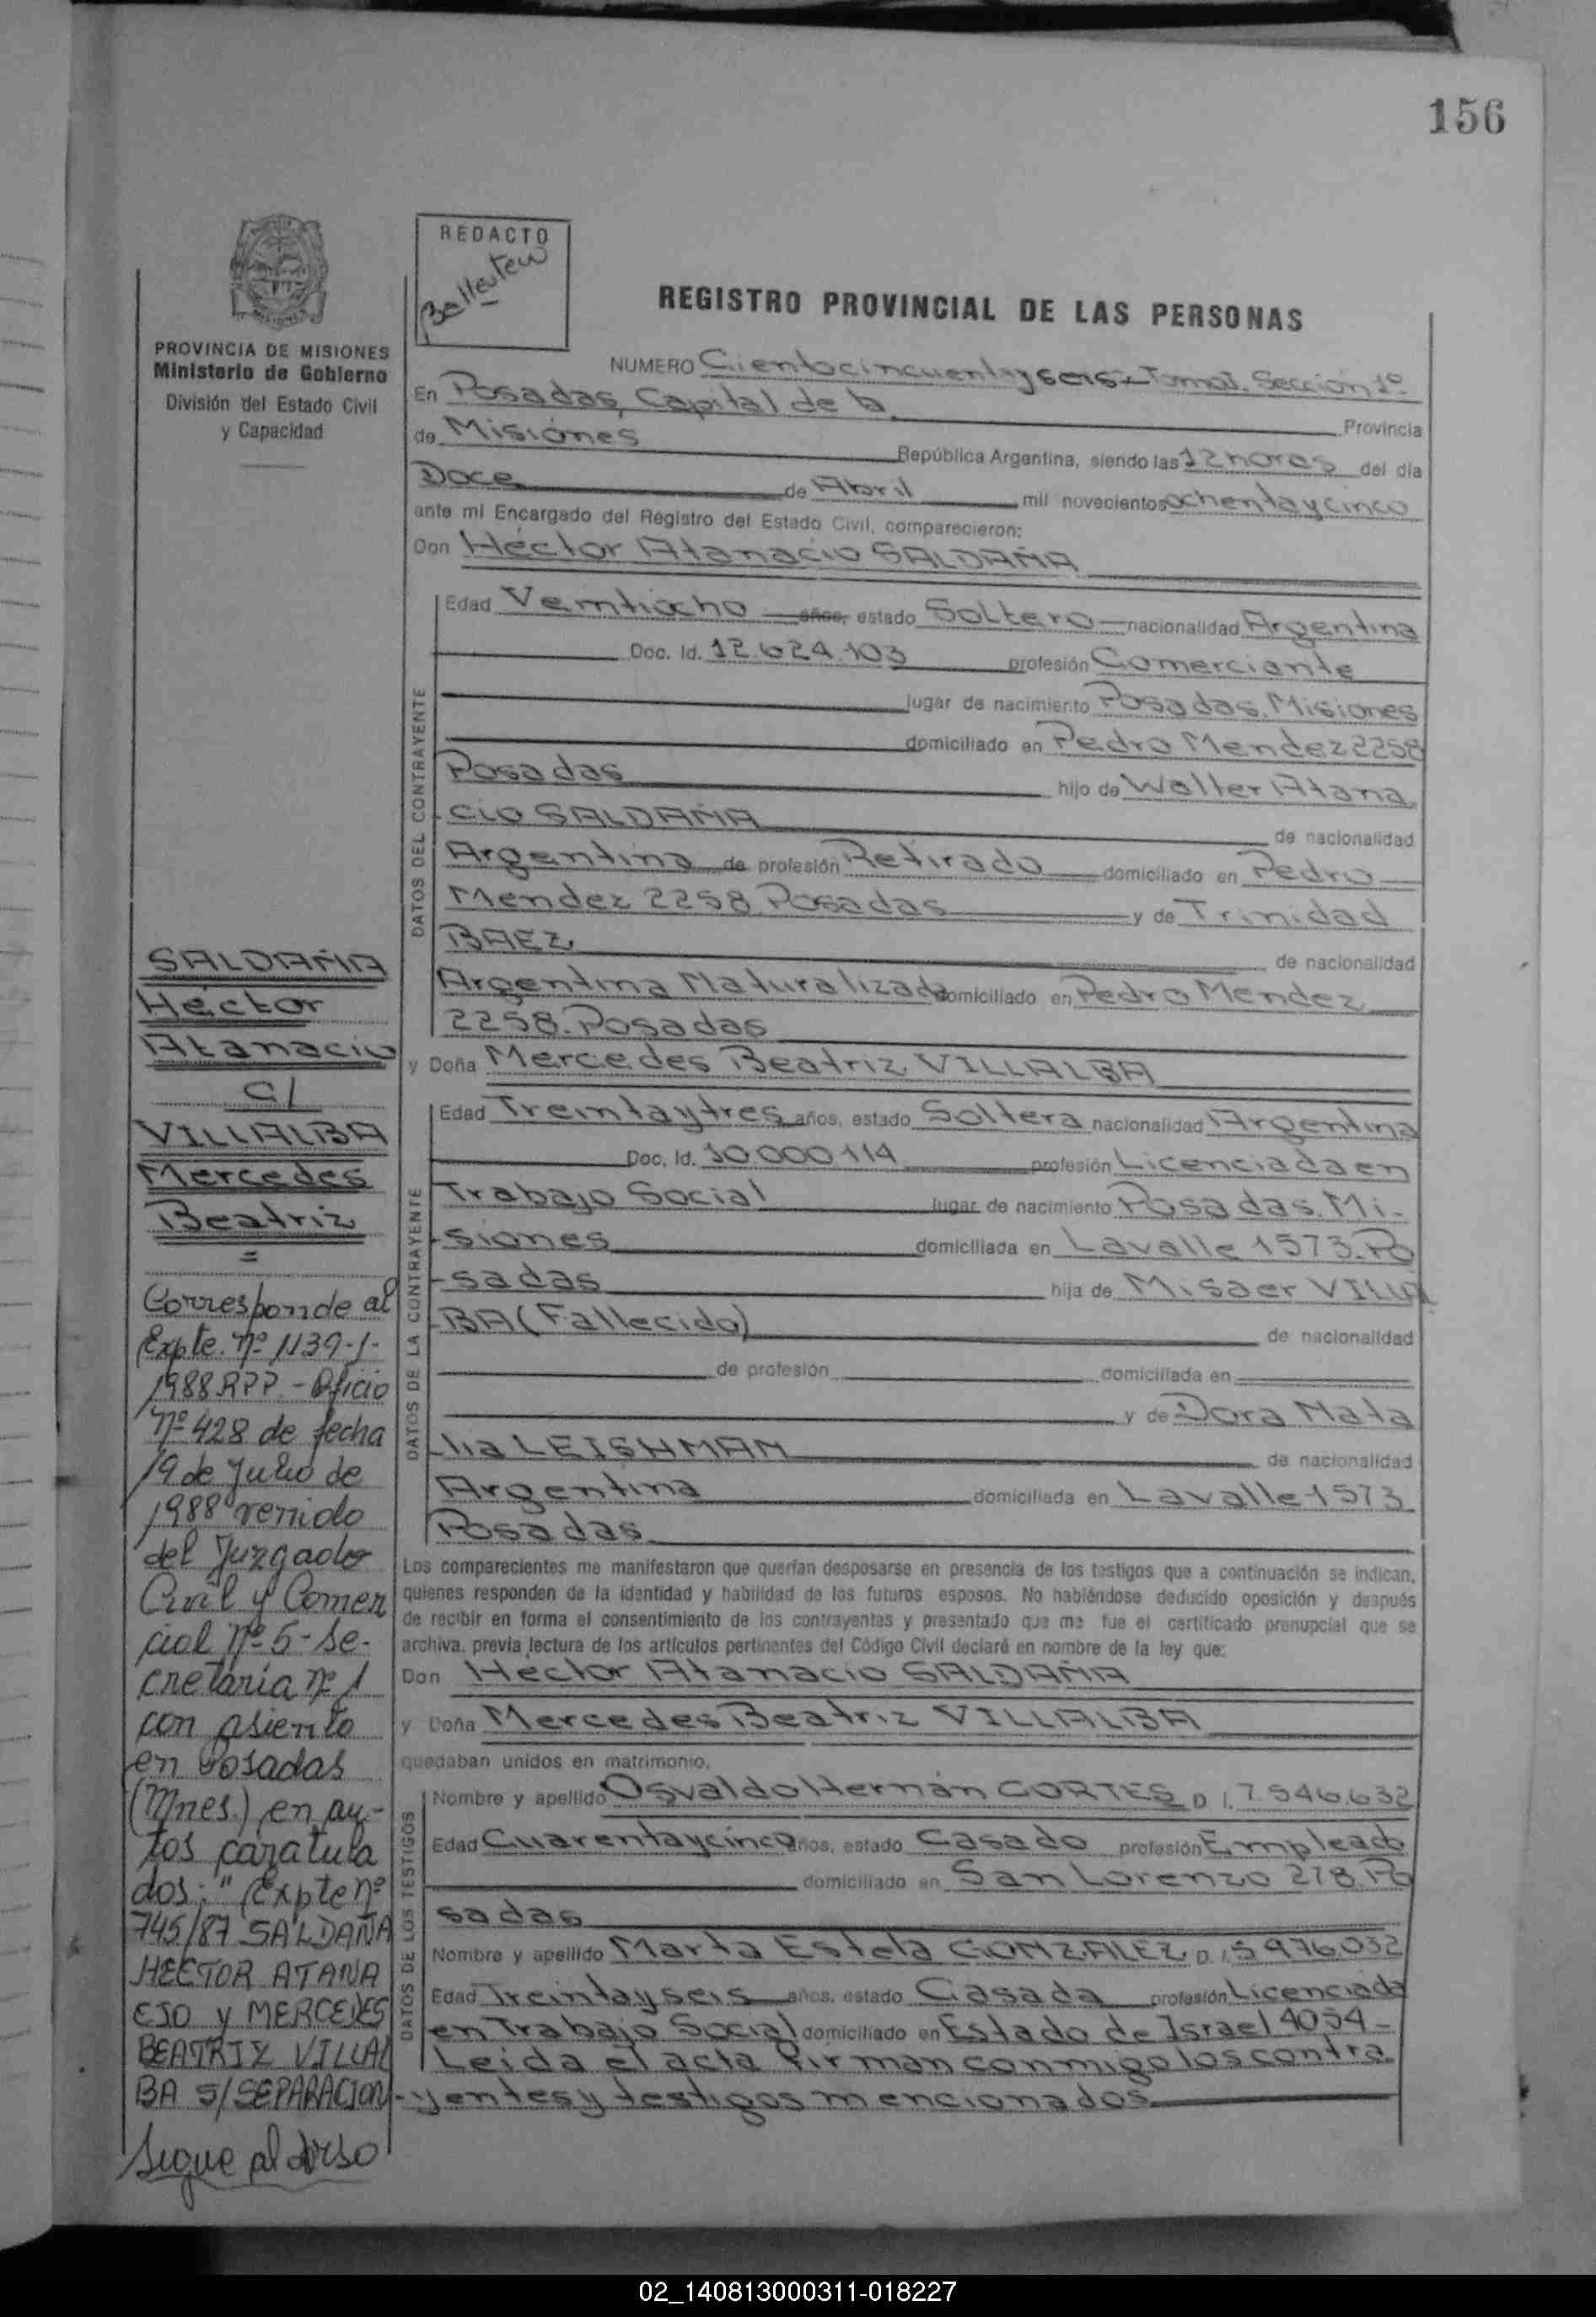 156
REDACTO
PROVINCIA DE MISIONES
Ministerio de Gobierno
División del Estado Civil
y Capacidad
REGISTRO PROVINCIAL DE LAS PERSONAS
NUMERO Cientocincuentayseis- TomoI. Sección 1º
En Posadas, Capital de la Provincia
de Misiones República Argentina, siendo las 12 horas del día
Doce de Abril mil novecientos ochentaycinco
ante mi Encargado del Registro del Estado Civil, comparecieron:
Don Héctor Atanacio SALDAÑA
DATOS DEL CONTRAYENTE
Edad Veintiocho años, estado Soltero nacionalidad Argentina
Doc. Id. 12.624.103 profesión Comerciante
lugar de nacimiento Posadas. Misiones
domiciliado en Pedro Mendez 2258
Posadas hijo de Walter Atana
cio SALDAÑA de nacionalidad
Argentina de profesión Retirado domiciliado en Pedro
Mendez 2258. Posadas y de Trinidad
BAEZ de nacionalidad
Argentina Naturalizada domiciliado en Pedro Mendez
2258. Posadas
y Doña Mercedes Beatriz VILLALBA
DATOS DE LA CONTRAYENTE
Edad Treintaytres años, estado Soltera nacionalidad Argentina
Doc. Id. 10.000.114 profesión Licenciada en
Trabajo Social lugar de nacimiento Posadas. Mi-
siones domiciliada en Lavalle 1573. Po
sadas hija de Misaer VILLAL
BA (Fallecido) de nacionalidad
de profesión domiciliada en
y de Dora Nata
lia LEISHMAN de nacionalidad
Argentina domiciliada en Lavalle 1573
Posadas
Los comparecientes me manifestaron que querían desposarse en presencia de los testigos que a continuación se indican,
quienes responden de la identidad y habilidad de los futuros esposos. No habiéndose deducido oposición y después
de recibir en forma el consentimiento de los contrayentes y presentado que me fue el certificado prenupcial que se
archiva, previa lectura de los artículos pertinentes del Código Civil declaré en nombre de la ley que:
Don Héctor Atanacio SALDAÑA
y Doña Mercedes Beatriz VILLALBA
quedaban unidos en matrimonio.
DATOS DE LOS TESTIGOS
Nombre y apellido Osvaldo Hernán CORTES D. I. 7.546.632
Edad Cuarentaycinco años, estado Casado profesión Empleado
domiciliado en San Lorenzo 278. Po
sadas
Nombre y apellido Marta Estela GONZALEZ D. I. 5.976.032
Edad Treintayseis años, estado Casada profesión Licenciada
en Trabajo Social domiciliado en Estado de Israel 4054-
Leida el acta firman conmigo los contra
-yentes y testigos mencionados
SALDAÑA
Héctor
Atanacio
C/
VILLALBA
Mercedes
Beatriz
=
Corresponde al
Expte. Nº 1139-J-
1988 RPP. - Oficio
Nº 428 de fecha
19 de Julio de
1988 venido
del Juzgado
Civil y Comer
cial Nº 5 - Se-
cretaria Nº 1
con asiento
en Posadas
(Mnes.) en au-
tos caratula
dos: "Expte nº
745/87 SALDAÑA
HECTOR ATANA
CIO y MERCEDES
BEATRIZ VILLAL
BA S/SEPARACION
Sigue al dorso
02_140813000311-018227